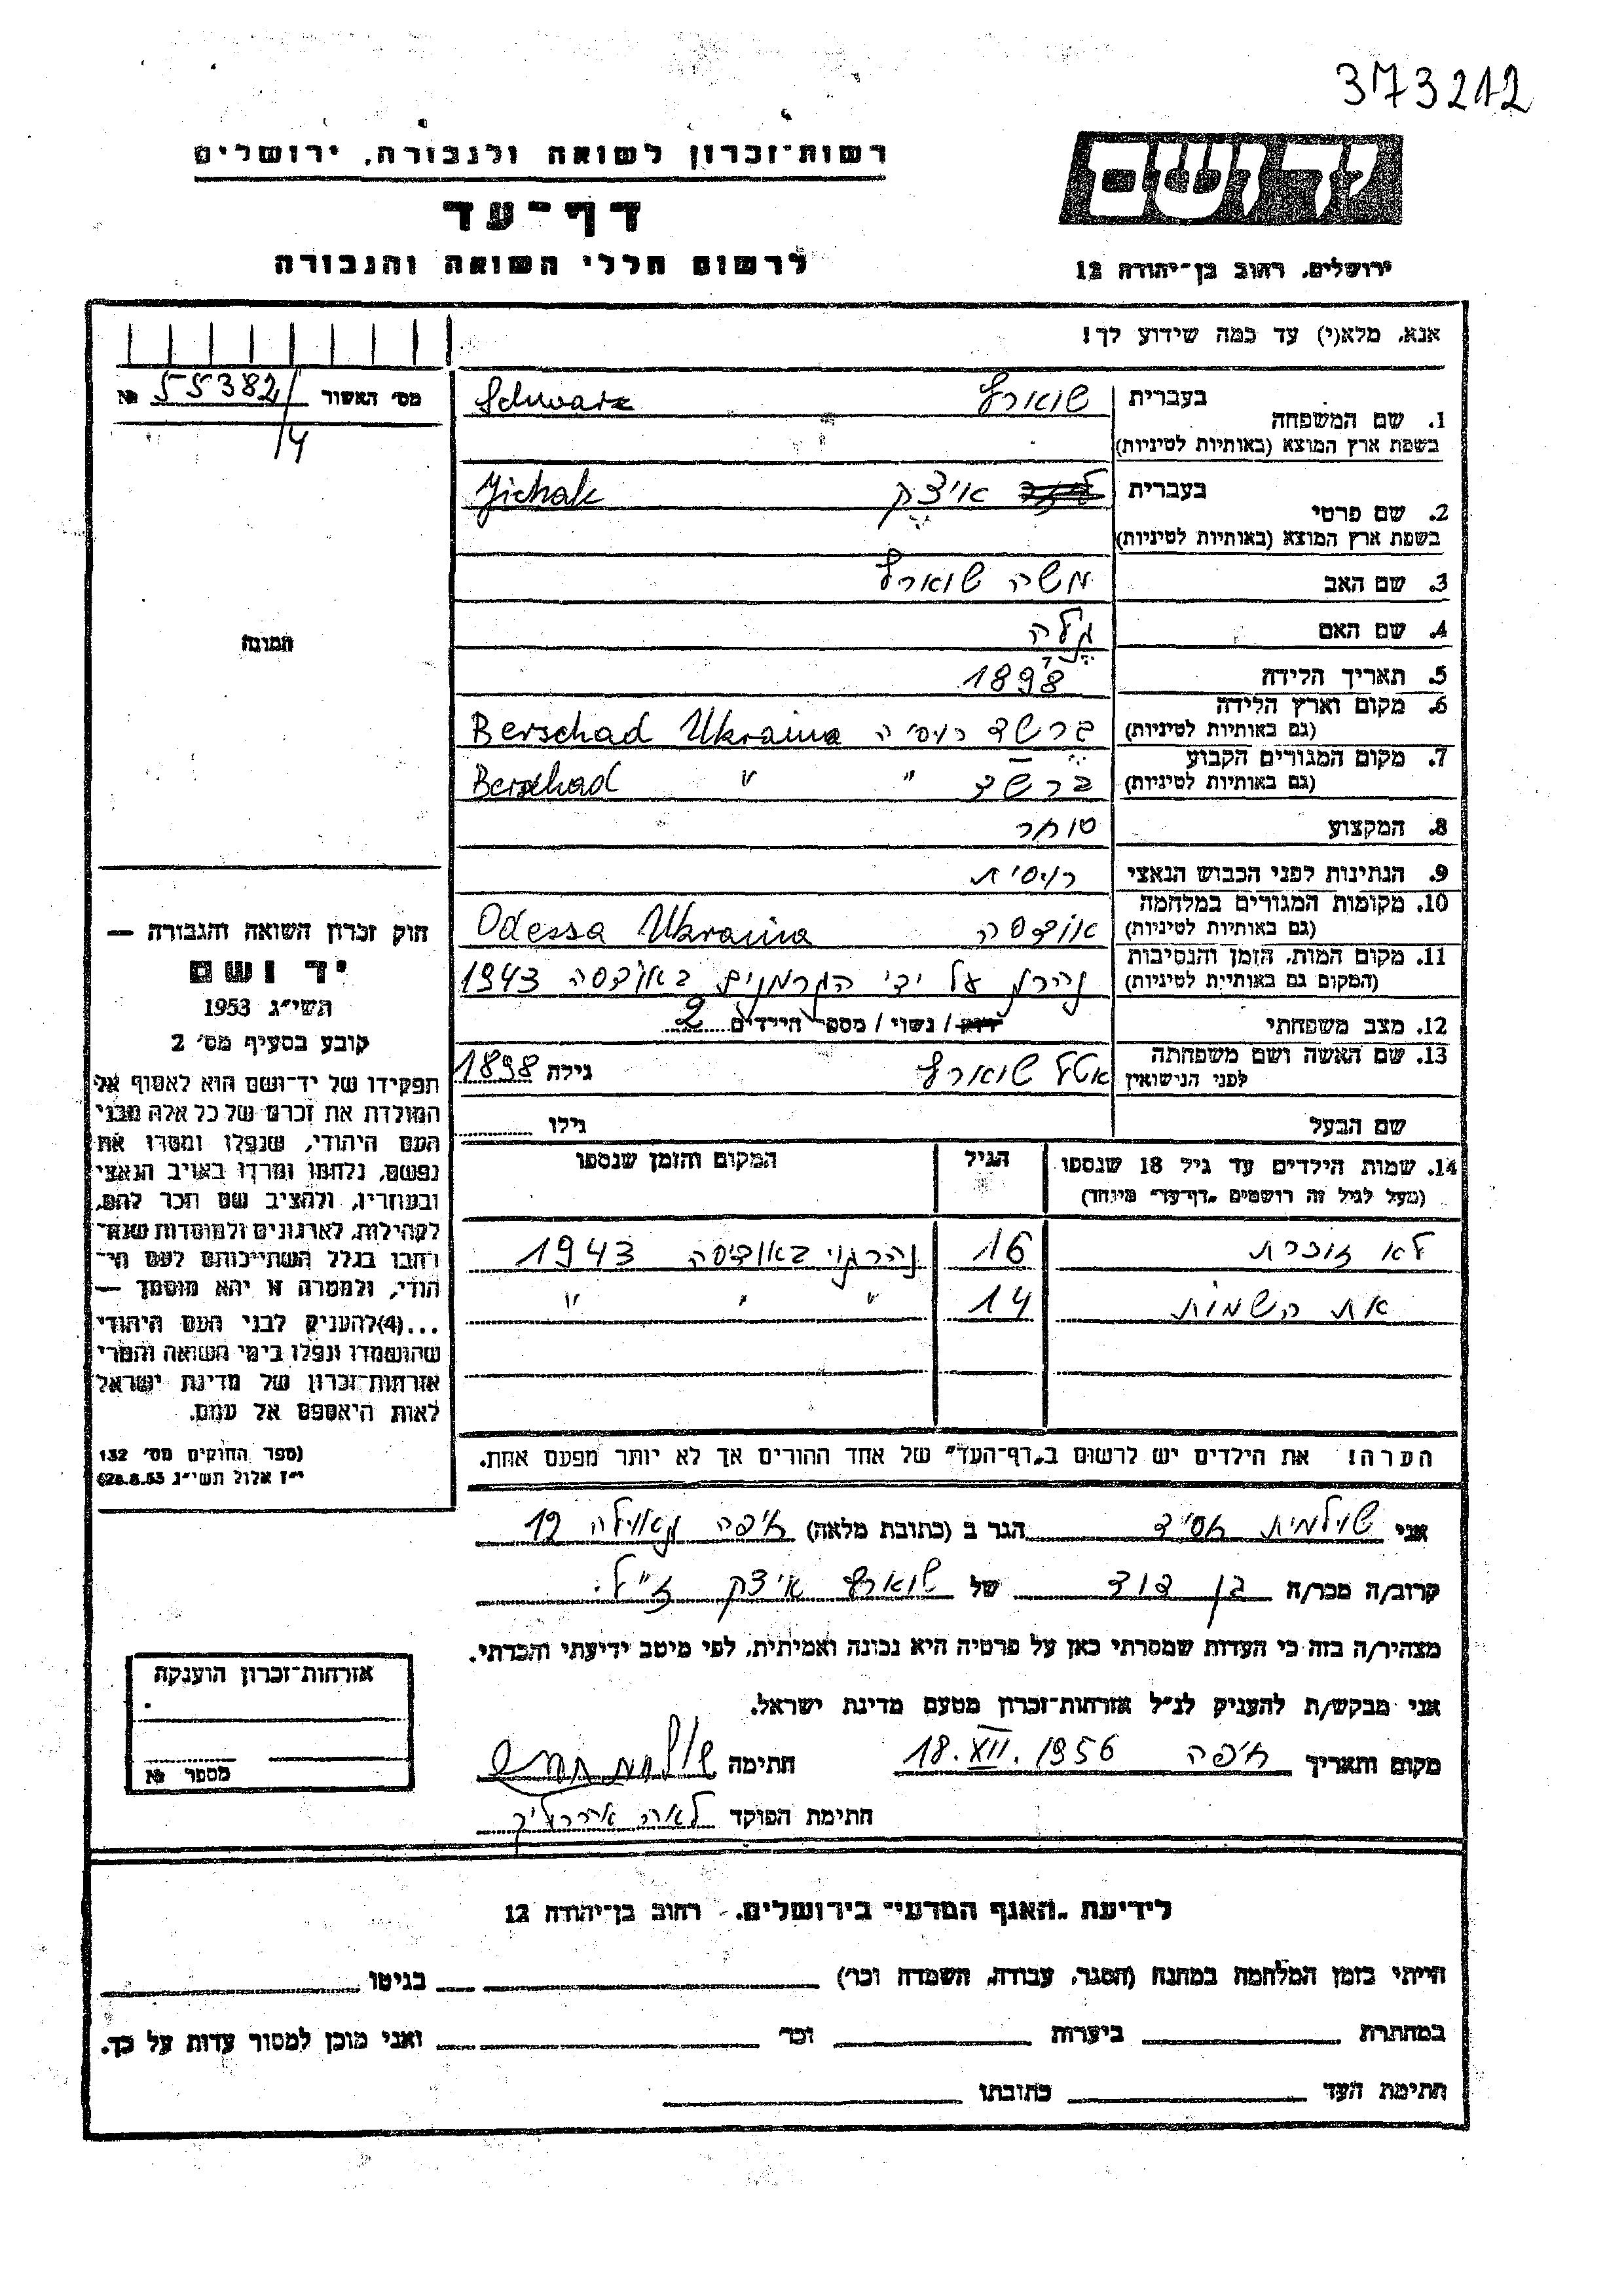 373212
רשות־זכרון לשואה ולגבורה, ירושלים
יד ושם
דף־עד
לרשום חללי השואה והגבורה
ירושלים, רחוב בן־יהודה 12
אנא, מלא(י) עד כמה שידוע לך!
מס׳ האשור 55382/4 №
1. שם המשפחה בעברית שווארץ Schwarz
בשפת ארץ המוצא (באותיות לטיניות)
2. שם פרטי בעברית איצק Jichak
בשפת ארץ המוצא (באותיות לטיניות)
3. שם האב משה שווארץ
4. שם האם
5. תאריך הלידה 1898
6. מקום וארץ הלידה ברשד רוסיה Berschad Ukraina
(גם באותיות לטיניות)
7. מקום המגורים הקבוע ברשד " " Berschad
(גם באותיות לטיניות)
8. המקצוע סוחר
9. הנתינות לפני הכבוש הנאצי רוסית
10. מקומות המגורים במלחמה אודסה Odessa Ukraina
(גם באותיות לטיניות)
11. מקום המות, הזמן והנסיבות נהרג על ידי הגרמנים באודסה 1943
(המקום גם באותיות לטיניות)
12. מצב משפחתי רווק / נשוי / מספר הילדים 2
13. שם האשה ושם משפחתה אטל שווארץ גילה 1898
לפני הנישואין
שם הבעל גילו
14. שמות הילדים עד גיל 18 שנספו הגיל המקום והזמן שנספו
(מעל לגיל זה רושמים „דף־עד״ מיוחד)
לא זוכרת 16 נהרגו באודיסה 1943
את השמות 14 " " "
הערה! את הילדים יש לרשום ב„דף־העד״ של אחד ההורים אך לא יותר מפעם אחת.
תמונה
חוק זכרון השואה והגבורה —
יד ושם
תשי״ג 1953
קובע בסעיף מס׳ 2
תפקידו של יד־ושם הוא לאסוף אל
המולדת את זכרם של כל אלה מבני
העם היהודי, שנפלו ומסרו את
נפשם, נלחמו ומרדו באויב הנאצי
ובעוזריו, ולהציב שם וזכר להם,
לקהילות, לארגונים ולמוסדות שנח־
רבו בגלל השתייכותם לעם הי־
הודי, ולמטרה זו יהא מוסמך —
...(4)להעניק לבני העם היהודי
שהושמדו ונפלו בימי השואה והמרי
אזרחות־זכרון של מדינת ישראל
לאות היאספם אל עמם.
(ספר החוקים מס׳ 132
י״ז אלול תשי״ג 28.8.53)
אני שולמית חסיד הגר ב (כתובת מלאה) חיפה 12
קרוב/ה מכר/ה בן דוד של שווארץ איצק ז״ל.
מצהיר/ה בזה כי העדות שמסרתי כאן על פרטיה היא נכונה ואמיתית, לפי מיטב ידיעתי והכרתי.
אני מבקש/ת להעניק לנ״ל אזרחות־זכרון מטעם מדינת ישראל.
מקום ותאריך חיפה 18.XII.1956 חתימה
חתימת הפוקד
אזרחות־זכרון הוענקה
מספר №
לידיעת „האגף המדעי״ בירושלים, רחוב בן־יהודה 12
הייתי בזמן המלחמה במחנה (הסגר, עבודה, השמדה וכו׳) בגיטו
במחתרת ביערות וכו׳ ואני מוכן למסור עדות על כך.
חתימת העד כתובתו